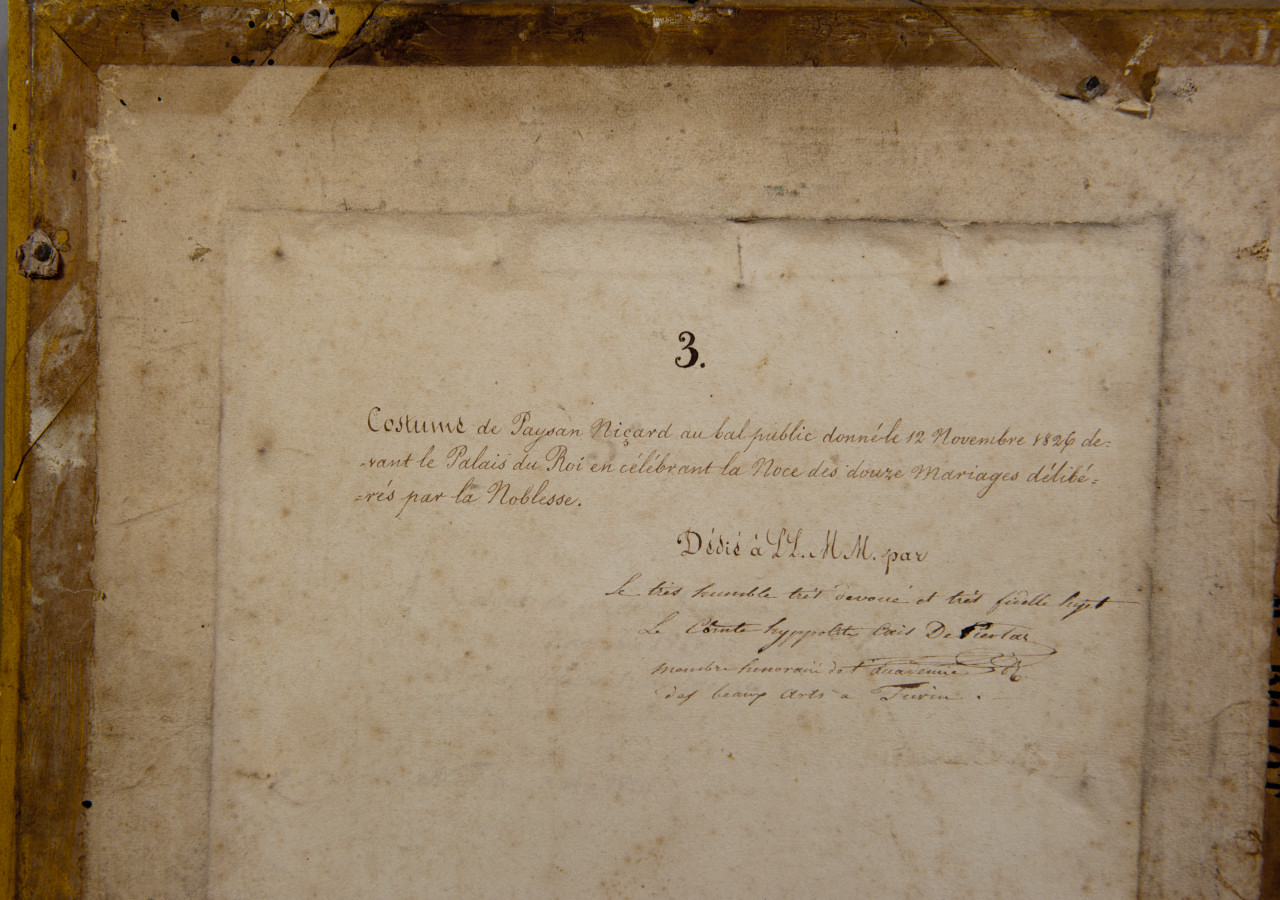 3.
Costume de Paysan Niçard au bal public donné le 12 Novembre 1826 de=
=vant le Palais du Roi en célébrant la Noce des douze Mariages délibé=
=rés par la Noblesse.
Dédié à LL. MM. par
Le très humble très devoué et très fidelle sujet
Le Comte hyppolite Cais De Pierlas
membre honoraire de l'accademie
des beaux Arts a Turin.